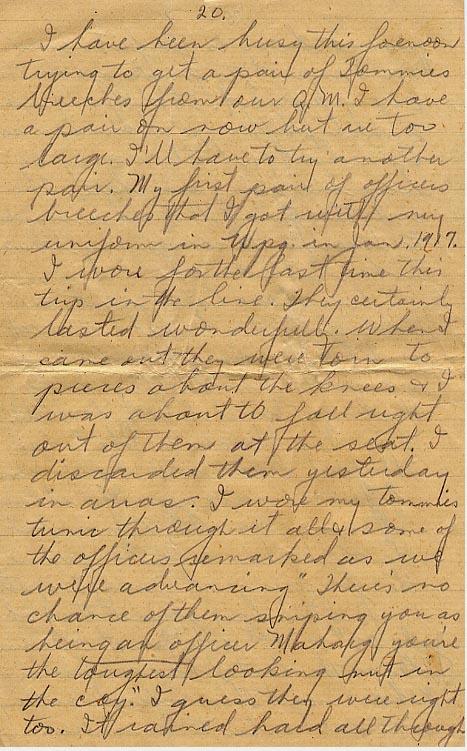 20.
I have been busy this forenoon
trying to get a pair of Tommies
breeches from our Q.M. I have
a pair on now but is too
large. I'll have to try another
pair. My first pair of officers
breeches that I got with my
uniform in Wpg. in Jan. 1917.
I wore for the last time this
trip in the line. They certainly
lasted wonderfull. When I
came out they were torn to
pieces about the knees & I
was about to fall right
out of them at the seat. I
discarded them yesterday
in arras. I wore my tommies
tunic through it all & some of
the officers remarked as we
were advancing "There's no
chance of them sniping you as
being an officer Maharg, you're
the toughest looking nut in
the coy." I guess they were right
too. It rained hard all through